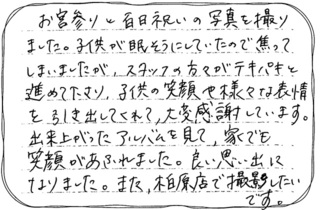 お宮参りと百日祝いの写真を撮り
ました。子供が眠そうにしていたので焦って
しまいましたが、スタッフの方々がテキパキと
進めて下さり、子供の笑顔や様々な表情
を引き出してくれて、大変感謝しています。
出来上がったアルバムを見て、家でも
笑顔があふれました。良い思い出に
なりました。また、柏原店で撮影したい
です。